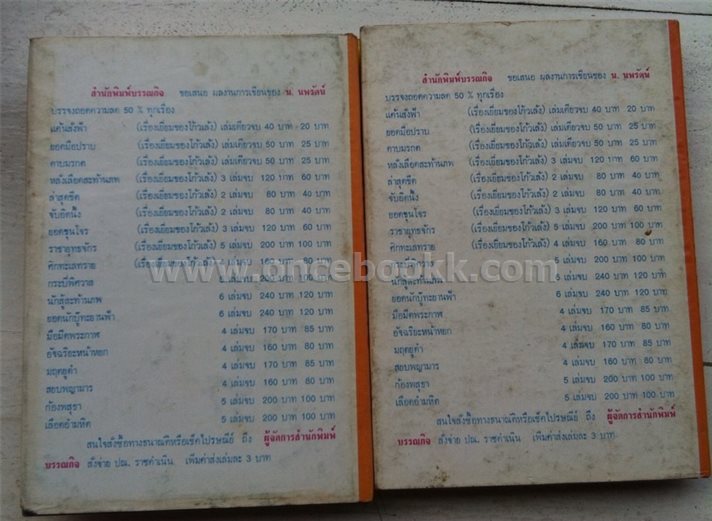 สำนักพิมพ์บรรณกิจ ขอเสนอ ผลงานการเขียนของ น. นพรัตน์
บรรจงถอดความลด 50 % ทุกเรื่อง
แค้นสั่งฟ้า (เรื่องเยี่ยมของโก้วเล้ง) เล่มเดียวจบ 40 บาท 20 บาท
ยอดมือปราบ (เรื่องเยี่ยมของโก้วเล้ง) เล่มเดียวจบ 50 บาท 25 บาท
ดาบมรกต (เรื่องเยี่ยมของโก้วเล้ง) เล่มเดียวจบ 50 บาท 25 บาท
หลั่งเลือดสะท้านภพ (เรื่องเยี่ยมของโก้วเล้ง) 3 เล่มจบ 120 บาท 60 บาท
ล่าสุดขีด (เรื่องเยี่ยมของโก้วเล้ง) 2 เล่มจบ 80 บาท 40 บาท
จับอิดนึ้ง (เรื่องเยี่ยมของโก้วเล้ง) 2 เล่มจบ 80 บาท 40 บาท
ยอดขุนโจร (เรื่องเยี่ยมของโก้วเล้ง) 3 เล่มจบ 120 บาท 60 บาท
ราชายุทธจักร (เรื่องเยี่ยมของโก้วเล้ง) 5 เล่มจบ 200 บาท 100 บาท
ศึกทะเลทราย (เรื่องเยี่ยมของโก้วเล้ง) 4 เล่มจบ 160 บาท 80 บาท
กระบี่พิศวาส 5 เล่มจบ 200 บาท 100 บาท
นักสู้สะท้านภพ 6 เล่มจบ 240 บาท 120 บาท
ยอดนักบู๊ทะยานฟ้า 6 เล่มจบ 240 บาท 120 บาท
มือมีดพระกาฬ 4 เล่มจบ 170 บาท 85 บาท
อัจฉริยะหน้าหยก 4 เล่มจบ 160 บาท 80 บาท
มฤตยูดำ 4 เล่มจบ 170 บาท 85 บาท
สยบพญามาร 4 เล่มจบ 160 บาท 80 บาท
ก้องพสุธา 5 เล่มจบ 200 บาท 100 บาท
เลือดอำมหิต 5 เล่มจบ 200 บาท 100 บาท
สนใจสั่งซื้อทางธนาณัติหรือเช็คไปรษณีย์ ถึง ผู้จัดการสำนักพิมพ์
บรรณกิจ สั่งจ่าย ปณ. ราชดำเนิน เพิ่มค่าส่งเล่มละ 3 บาท
สำนักพิมพ์บรรณกิจ ขอเสนอ ผลงานการเขียนของ น. นพรัตน์
บรรจงถอดความลด 50 % ทุกเรื่อง
แค้นสั่งฟ้า (เรื่องเยี่ยมของโก้วเล้ง) เล่มเดียวจบ 40 บาท 20 บาท
ยอดมือปราบ (เรื่องเยี่ยมของโก้วเล้ง) เล่มเดียวจบ 50 บาท 25 บาท
ดาบมรกต (เรื่องเยี่ยมของโก้วเล้ง) เล่มเดียวจบ 50 บาท 25 บาท
หลั่งเลือดสะท้านภพ (เรื่องเยี่ยมของโก้วเล้ง) 3 เล่มจบ 120 บาท 60 บาท
ล่าสุดขีด (เรื่องเยี่ยมของโก้วเล้ง) 2 เล่มจบ 80 บาท 40 บาท
จับอิดนึ้ง (เรื่องเยี่ยมของโก้วเล้ง) 2 เล่มจบ 80 บาท 40 บาท
ยอดขุนโจร (เรื่องเยี่ยมของโก้วเล้ง) 3 เล่มจบ 120 บาท 60 บาท
ราชายุทธจักร (เรื่องเยี่ยมของโก้วเล้ง) 5 เล่มจบ 200 บาท 100 บาท
ศึกทะเลทราย (เรื่องเยี่ยมของโก้วเล้ง) 4 เล่มจบ 160 บาท 80 บาท
กระบี่พิศวาส 5 เล่มจบ 200 บาท 100 บาท
นักสู้สะท้านภพ 6 เล่มจบ 240 บาท 120 บาท
ยอดนักบู๊ทะยานฟ้า 6 เล่มจบ 240 บาท 120 บาท
มือมีดพระกาฬ 4 เล่มจบ 170 บาท 85 บาท
อัจฉริยะหน้าหยก 4 เล่มจบ 160 บาท 80 บาท
มฤตยูดำ 4 เล่มจบ 170 บาท 85 บาท
สยบพญามาร 4 เล่มจบ 160 บาท 80 บาท
ก้องพสุธา 5 เล่มจบ 200 บาท 100 บาท
เลือดอำมหิต 5 เล่มจบ 200 บาท 100 บาท
สนใจสั่งซื้อทางธนาณัติหรือเช็คไปรษณีย์ ถึง ผู้จัดการสำนักพิมพ์
บรรณกิจ สั่งจ่าย ปณ. ราชดำเนิน เพิ่มค่าส่งเล่มละ 3 บาท
www.oncebookk.com